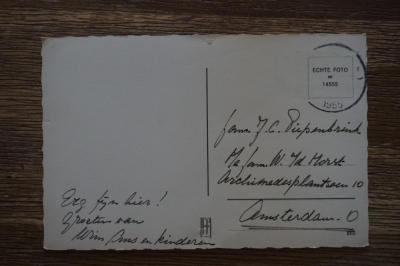 Erg fijn hier!
Groeten van
Wim, Ans en kinderen
ECHTE FOTO
14555
1955
Fam. J.C. Diepenbrink
p/a fam. W. Td Horst
Archimedesplantsoen 10
Amsterdam-O